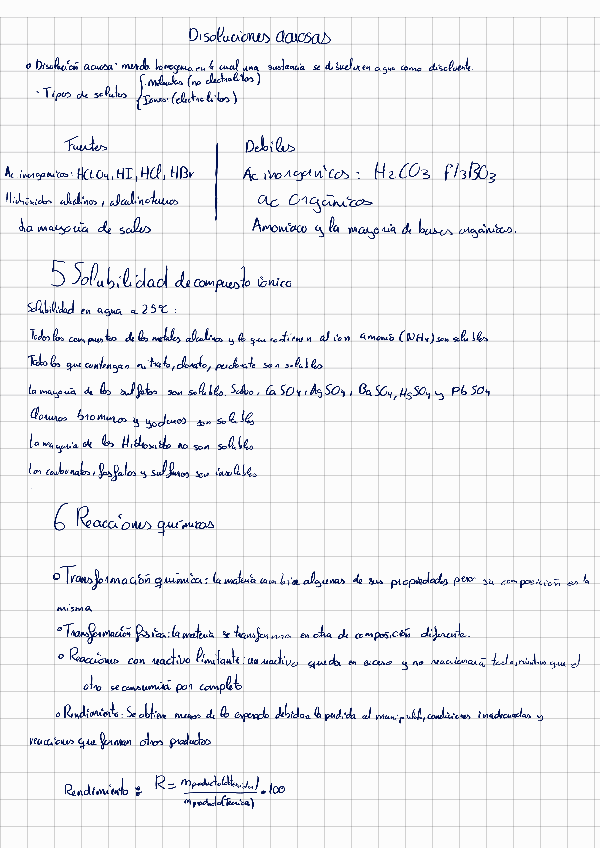 Disoluciones acuosas
Disolución acuosa: mezcla homogenea en la cual una sustancia se disuelve en agua como disolvente.
· Tipos de solutos { Moleculas (no electrolitos)
Iones (electrolitos)
Fuertes
Ac inorganicos: HClO4, HI, HCl, HBr
Hidróxidos alcalinos, alcalinoterreos
La mayoria de sales
Debiles
Ac inorganicos: H2CO3 H3BO3
ac Orgánicos
Amoniaco y la mayoria de bases orgánicas.
5 Solubilidad de compuesto ionico
Solubilidad en agua a 25ºC:
Todos los compuestos de los metales alcalinos y lo que contienen al ion amonio (NH4) son solubles
Todo los que contengan nitrato, clorato, perclorato son solubles
La mayoria de los sulfatos son solubles. Salvo, CaSO4, AgSO4, BaSO4, HgSO4 y PbSO4
Cloruros bromuros y yoduros son solubles
La mayoria de los Hidroxido no son solubles
Los carbonatos, fosfatos y sulfuros son insolubles
6 Reacciones químicas
Transformación química: la materia cambia algunas de sus propiedades pero su composición es la
misma
Transformación física: la materia se transforma en otra de composición diferente.
Reacciones con reactivo limitante: un reactivo queda en exceso y no reaccionará todo, mientras que el
otro se consumirá por completo
Rendimiento: Se obtiene menos de lo esperado debido a la perdida al manipular, condiciones inadecuadas y
reacciones que forman otros productos
Rendimiento: R = m producto (obtenida) / m producto (Teorica) · 100